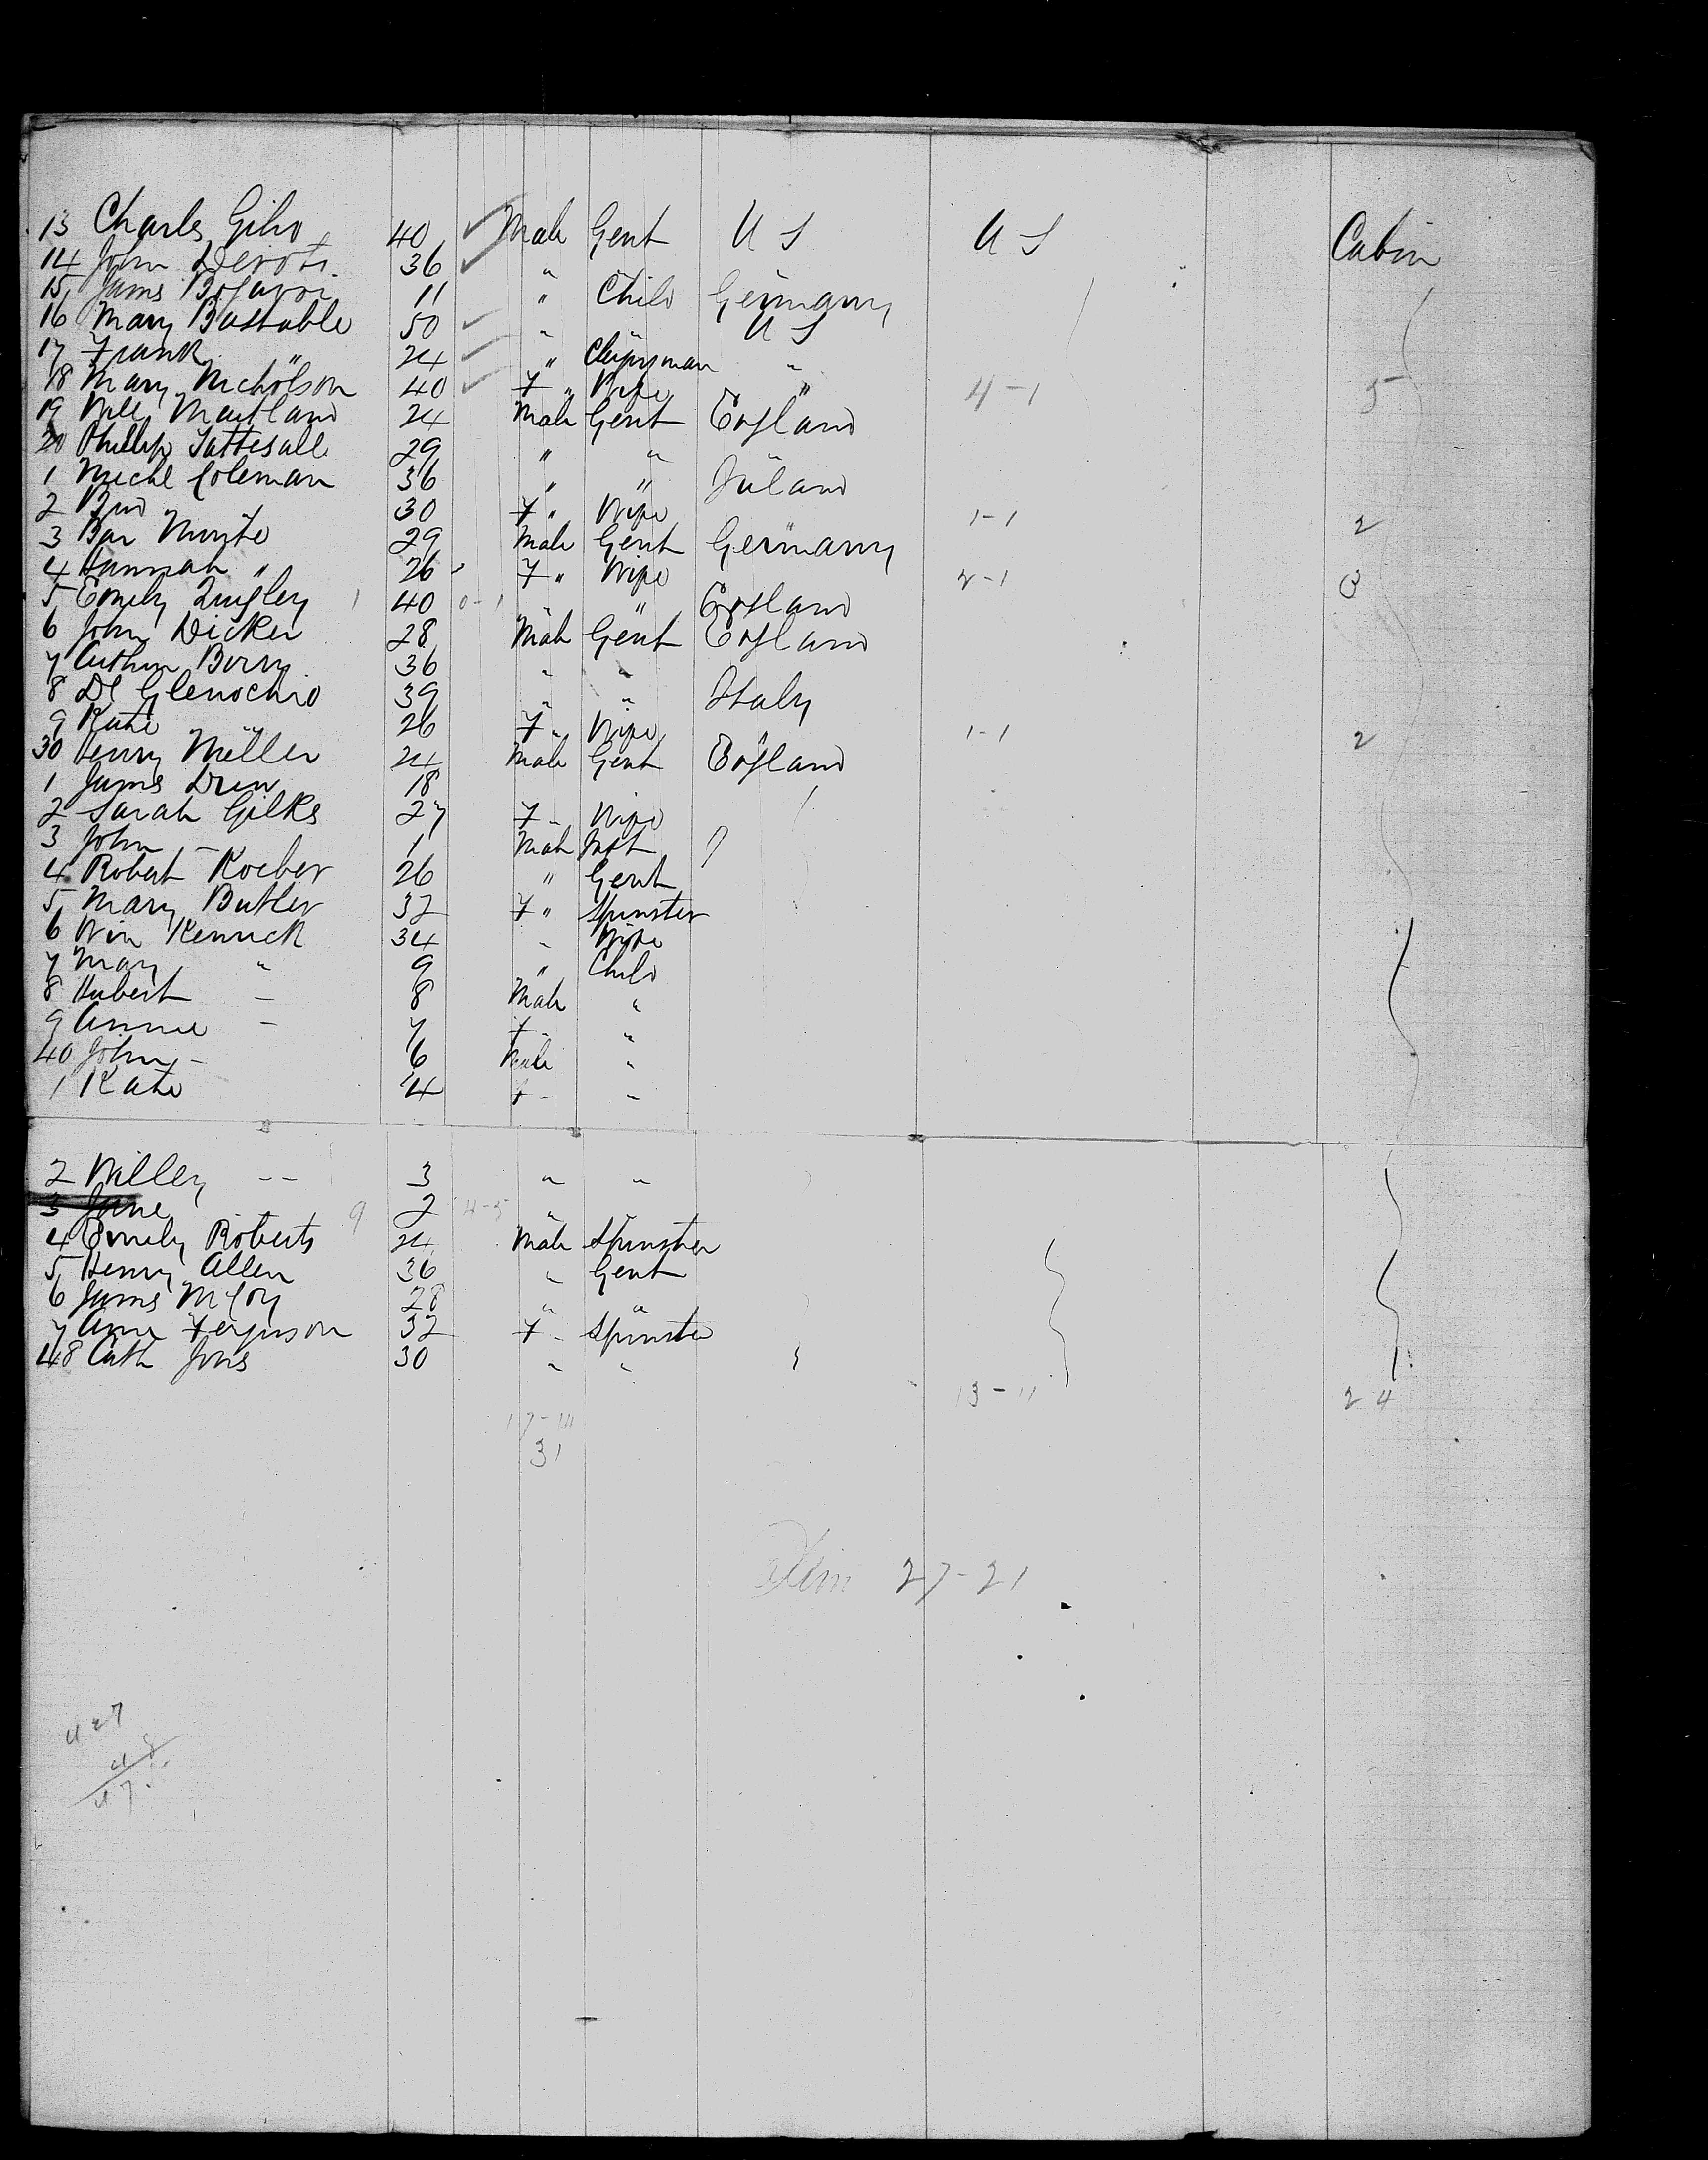 13 Charles Giho 40 ✓ Male Gent U S U S Cabin
14 John Devoti 36 ✓ " "
15 Jams 11 " Child Germany
16 Mary Bastable 50 ✓ " " U S
17 Frank " 24 ✓ " Clergyman "
18 Mary Nicholson 40 ✓ F " Wife " 4-1 5
19 Will Maitland 24 Male Gent England
20 Phillip Tattesall 29 " "
1 Michl Coleman 36 " " Ireland
2 30 F " Wife " 1-1 2
3 29 Male Gent Germany
4 Hannah " 26 F " Wife " 2-1 3
5 Emily Quigley 1 40 0-1 " England
6 John Dicker 28 Male Gent England
7 Arthur Berry 36 " "
8 De Glenochio 39 " " Italy
9 Kate 26 F " Wife " 1-1 2
30 Henry Miller 24 Male Gent England
1 Jams Drew 18
2 Sarah Gilks 27 F " Wife
3 John - 1 Male
4 Robert Koeber 26 " Gent
5 Mary Butler 32 F " Spinster
6 Win Kenrick 34 " Wife
7 Mary " 9 " Child
8 Hubert - 8 Male "
9 Annie - 7 F - "
40 John - 6 Male "
1 Kate 4 F - "
2 Willey -- 3 " "
3 Jane 9 2 4-5 " "
4 Emily Roberts 24 Male Spinster
5 Henry Allen 36 " Gent
6 Jams McCoy 28 " "
7 Anne Ferguson 32 F - Spinster
48 Cath Jons 30 " "
13-11 24
17-14
31
27-21
427
48
47